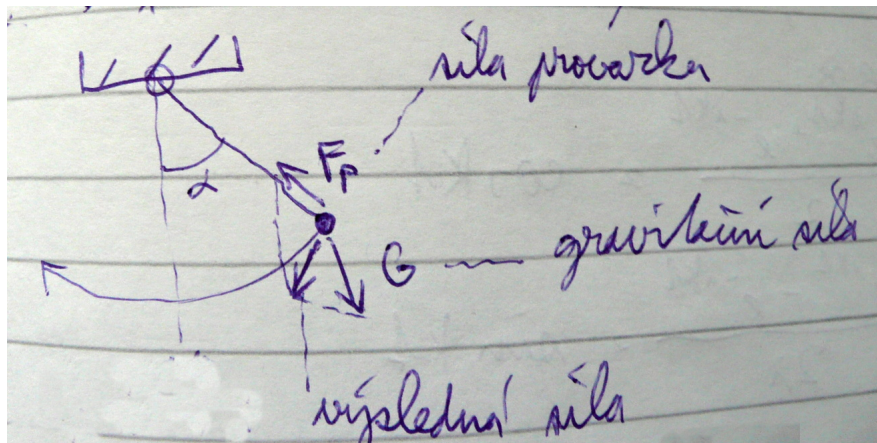 síla provázku
F_P
α
G — gravitační síla
výsledná síla